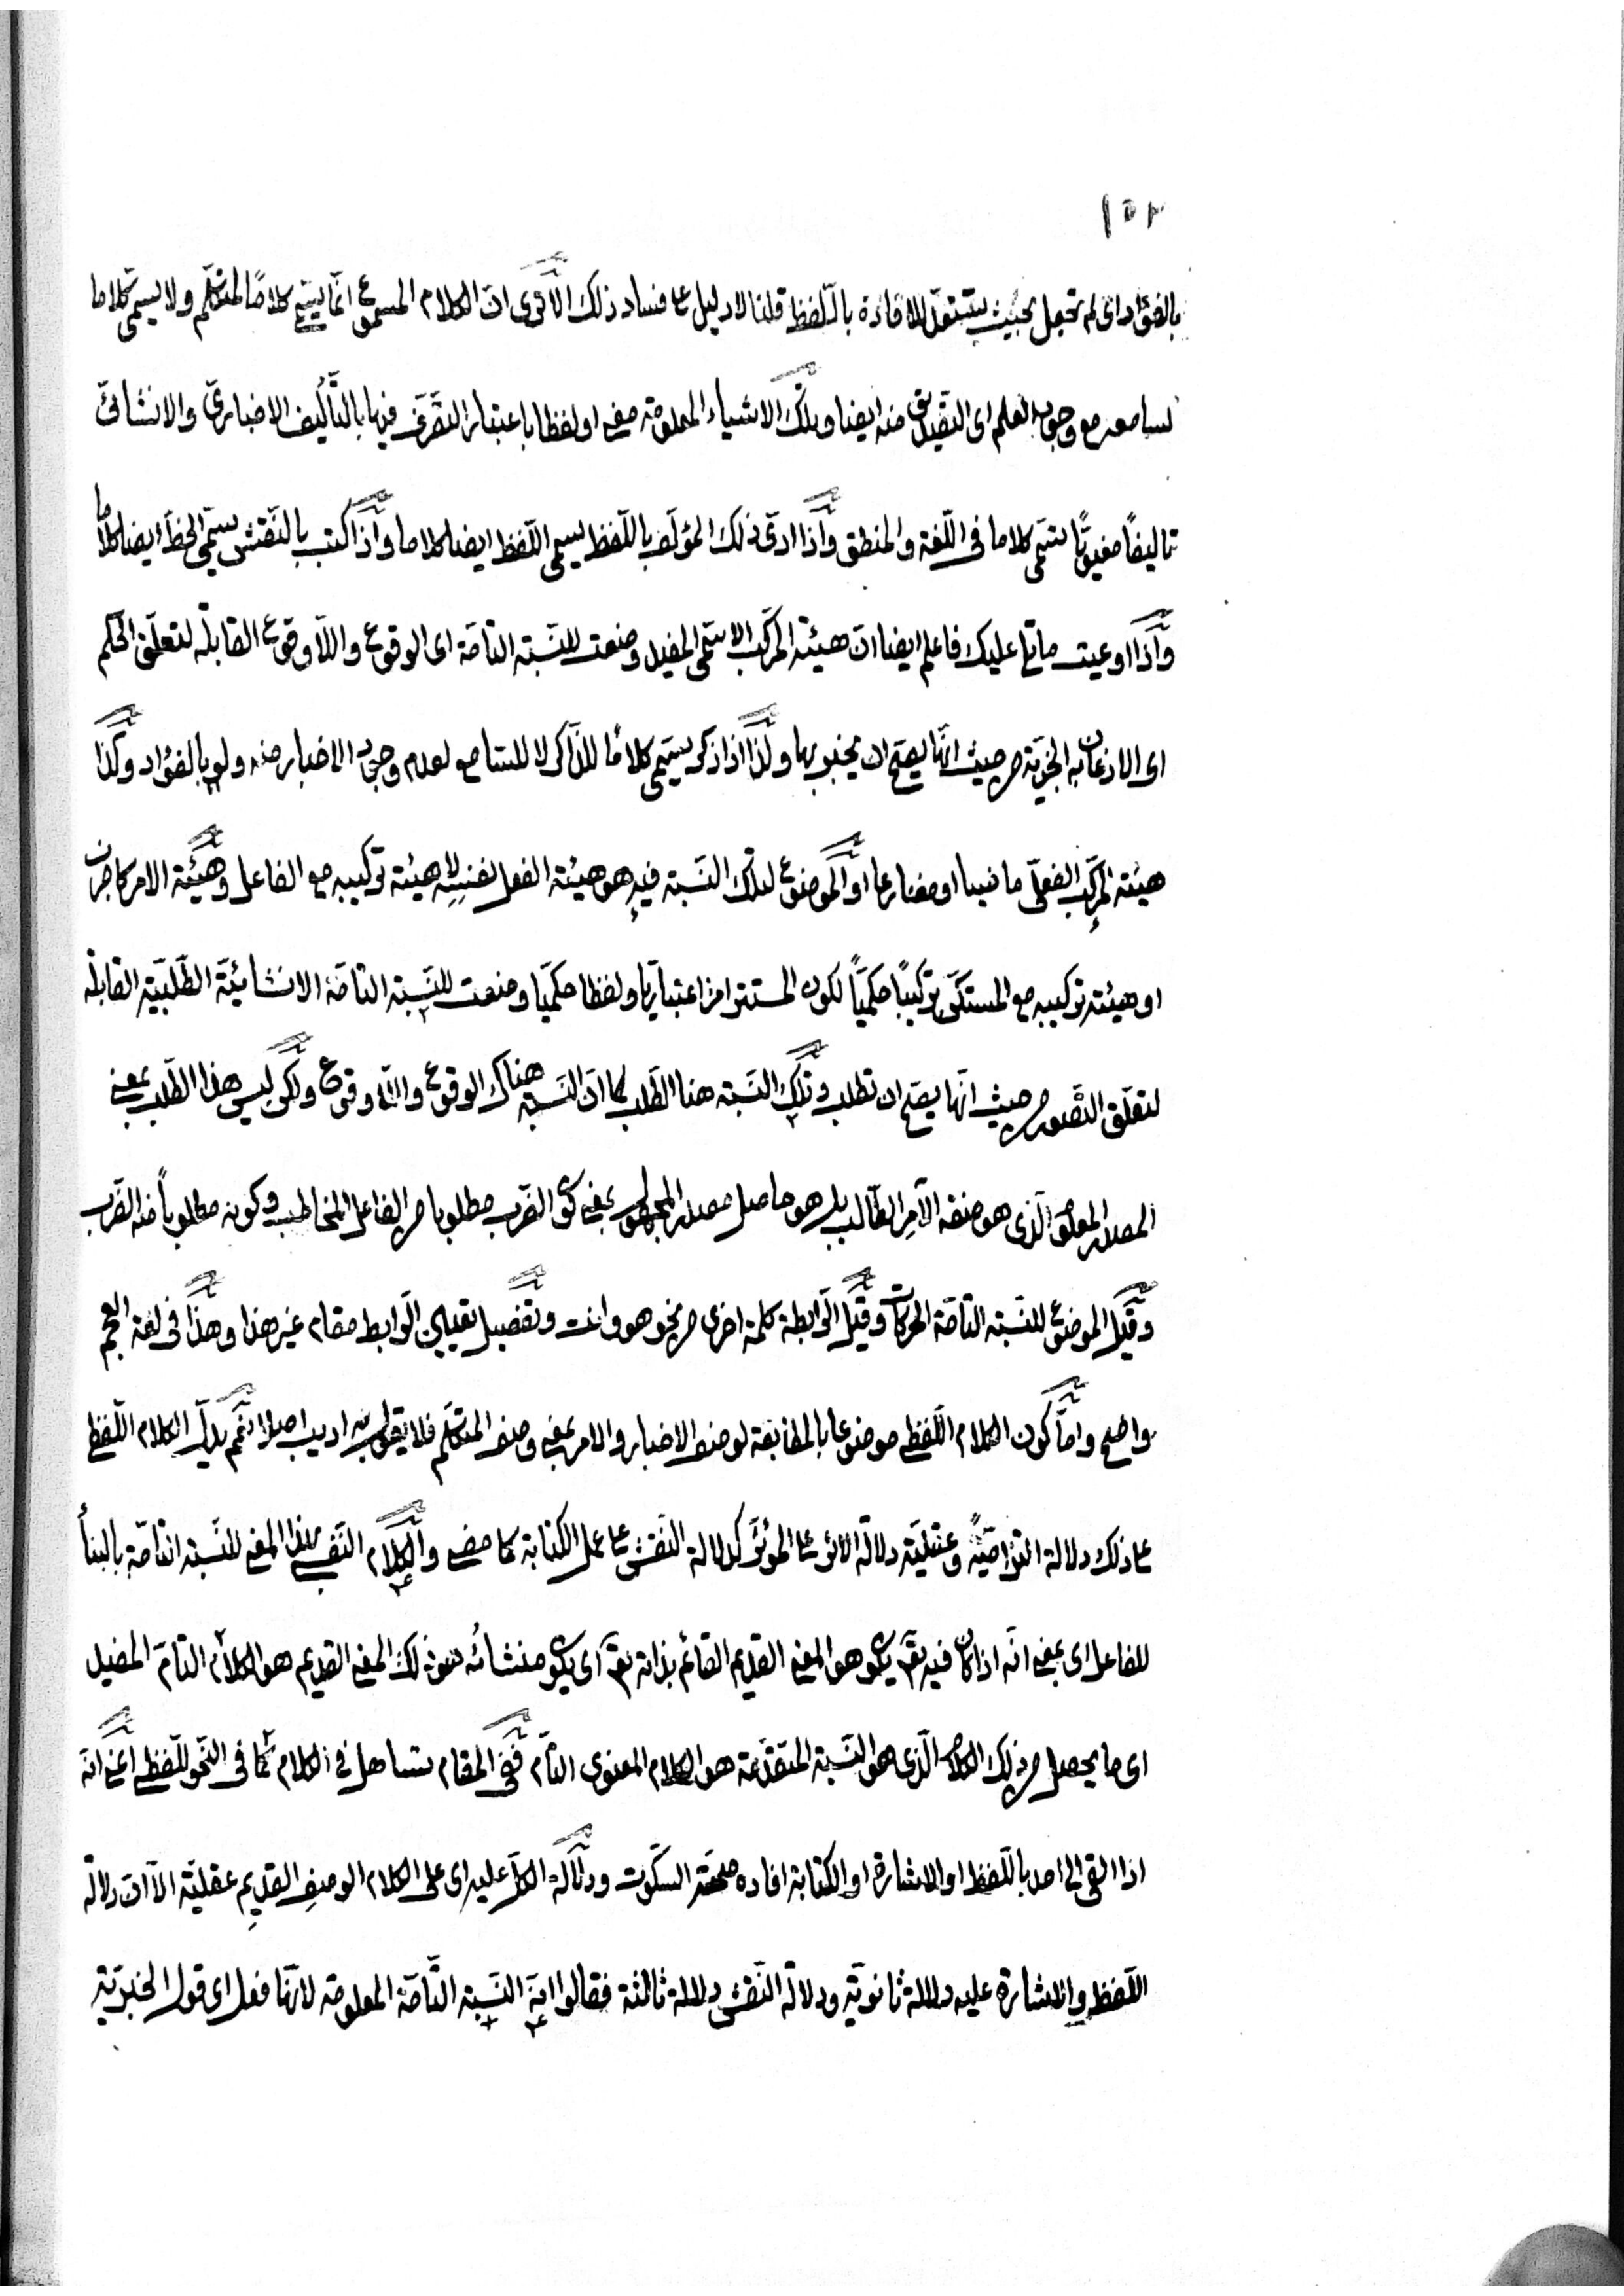 ١٥٢
بالفؤاد اى لم تجعل بحيث يستقل للافادة باللّفظ قلنا لا دليل على فساد ذلك الا ترى انّ الكلام المسموع انّما يسمّى كلامًا لمتكلّم ولا يسمى كلاما
لسامعه مع وجوب العلم اى التصديق منه ايضا وتلك الاشياء المعلومة معنى او لفظا باعتبار التصرّف فيها بالتّأليف الاخبارىّ والانشائىّ
تاليفًا معنويًّا يسمّى كلاما فى اللّغة والمنطق واذا ادّى ذلك المؤلّف باللّفظ يسمى اللّفظ ايضا كلاما واذا كتب بالنّقش يسمّى الخطّ ايضا كلاما
واذا اوعيت ما تلى عليك فاعلم ايضا انّ هيئة المركّب الاسمىّ المفيد وضعت للنّسبة التامّة اى الوقوع واللّاوقوع القابلة لتعلّق الحكم
اى الاذعان به الخبريّة من حيث انّها يصحّ ان يخبر بها ولذا اذا ذكر يسمّى كلامًا للذّاكر لا للسّامع لعدم وجوب الاخبار منه ولو بالفؤاد وكذا
هيئة المركّب الفعلىّ ماضيا او مضارعا او الموضوع لتلك النّسبة فيه هو هيئة الفعل لنفسه لا هيئة تركيبه مع الفاعل وهيئة الامر كاضرب
او هيئة تركيبه مع المستكنّ تركيبًا حكميًّا لكون المستتر امرا اعتباريّا ولفظا حكميّا وضعت للنّسبة التامّة الانشائيّة الطّلبيّة القابلة
لتعلّق التّصوّر من حيث انّها يصحّ ان تطلب وتلك النّسبة هنا الطّلب كما انّ النّسبة هناك الوقوع واللّاوقوع ولكن ليس هذا الطّلب بمعنى
المصدر المعلوم الّذى هو صفة الآمر الطّالب بل هو حاصل مصدر المجهول بمعنى كون الضّرب مطلوبا من الفاعل المخاطب وكونه مطلوبًا منه الضّرب
وقيل الموضوع للنّسبة التامّة الحركات وقيل الرّابطة كلمة اخرى من نحو هو وانت وتفصيل تعيين الرّابط مقام غير هذا وهذا فى لغة العجم
واضح وامّا كون الكلام اللّفظى موضوعا بالمطابقة لوصف الاخبار والامر بمعنى وصف المتكلّم فلا يقول به اديب اصلا نعم يدلّ الكلام اللّفظى
على ذلك دلالة التزاميّة وعقليّة دلالة الاثر على المؤثّر كدلالة النّقش على عمل الكتابة كما مضى والكلام النّفسىّ بهذا المعنى للنّسبة التامّة بالبناء
للفاعل اى بمعنى انّه اذا كان فيه تعالى يكون هو المعنى القديم القائم بذاته تعالى اى يكون منشائه ذلك المعنى القديم هو الكلام التّامّ المفيد
اى ما يحصل من ذلك الكلام الّذى هو النّسبة المتقدّمة هو الكلام المعنوى التّامّ ففى المقام تساهل فى الكلام كما فى النّحو للّفظى اعنى انّه
اذا القى الى احد باللّفظ او الاشارة او الكتابة افاده صحّة السّكوت ودلالة الكلّ عليه اى على الكلام الوصفى القديم عقليّة الّا انّ دلالة
اللّفظ والاشارة عليه دلالة ثانويّة ودلالة النّقش دلالة ثالثة فقالوا النّسبة التّامّة المعلومة لانّها فعل اى قول الخبريّة